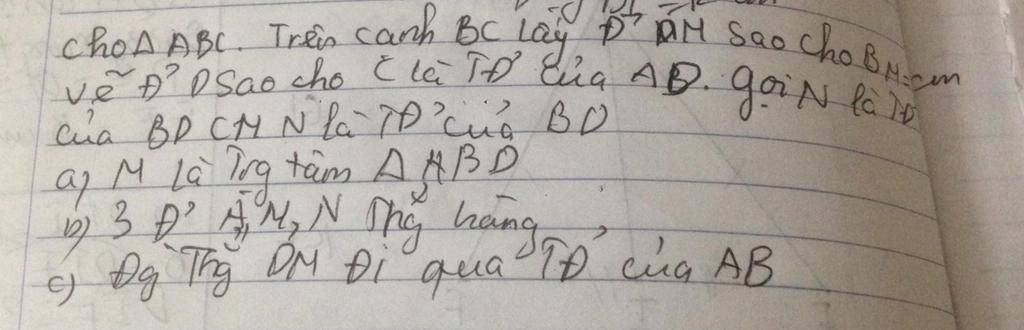 Cho Δ ABC. Trên cạnh BC lấy Đ' M sao cho BM=cm
vẽ Đ' D sao cho C là TĐ' của AD. gọi N là TĐ
của BD CM N là TĐ' của BD
a) M là Trg tâm Δ ABD
b) 3 Đ' A, M, N Thg̉ hàng
c) Đg Thg̉ DM Đi qua TĐ' của AB